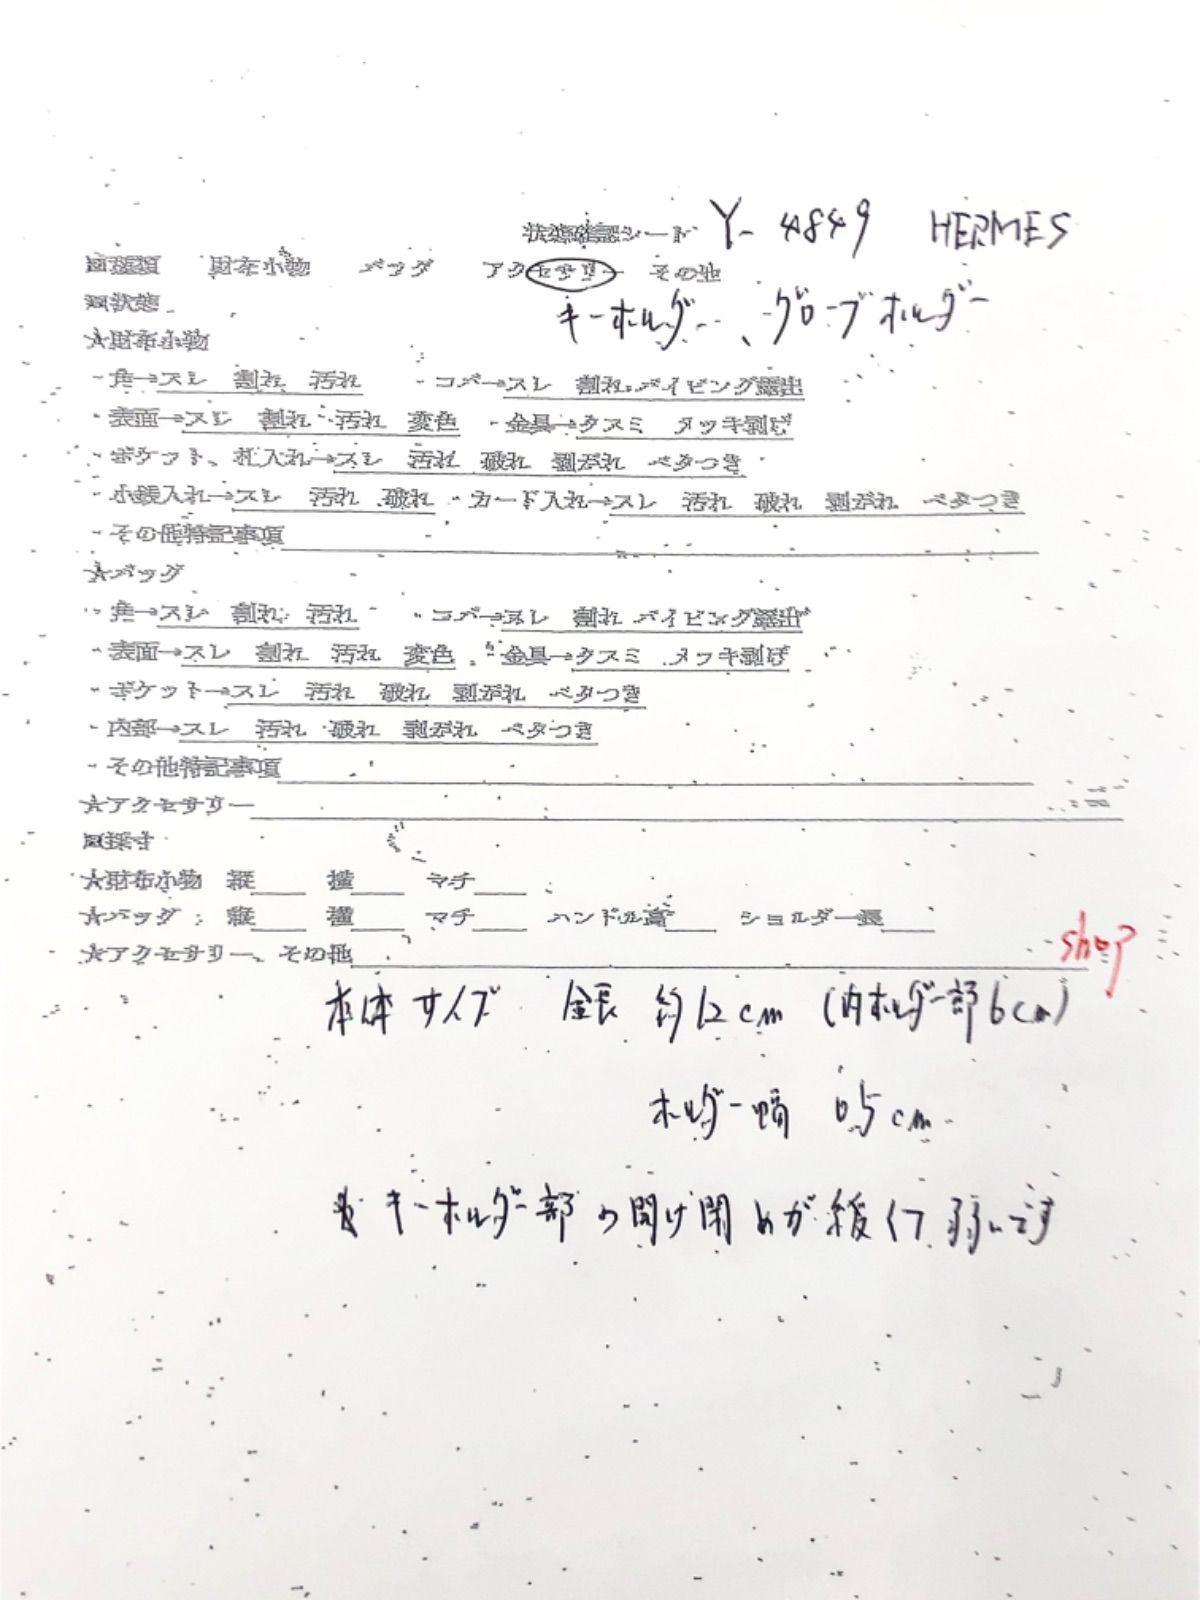 状態確認シート Y-4849 HERMES
■種類 財布小物 バッグ アクセサリー その他
■状態 キーホルダー、グローブホルダー
★財布小物
・角→スレ 割れ 汚れ ・コバ→スレ 割れ パイピング露出
・表面→スレ 割れ 汚れ 変色 ・金具→クスミ メッキ剥げ
・ポケット、札入れ→スレ 汚れ 破れ 剥がれ ベタつき
・小銭入れ→スレ 汚れ 破れ ・カード入れ→スレ 汚れ 破れ 剥がれ ベタつき
・その他特記事項
★バッグ
・角→スレ 割れ 汚れ ・コバ→スレ 割れ パイピング露出
・表面→スレ 割れ 汚れ 変色 ・金具→クスミ メッキ剥げ
・ポケット→スレ 汚れ 破れ 剥がれ ベタつき
・内部→スレ 汚れ 破れ 剥がれ ベタつき
・その他特記事項
★アクセサリー
■採寸
★財布小物 縦 横 マチ
★バッグ:縦 横 マチ ハンドル高 ショルダー長
★アクセサリー、その他 shop
本体サイズ 全長 約12cm (内ホルダー部6cm)
ホルダー幅 0.5cm
※キーホルダー部の開け閉めが緩くて弱いです